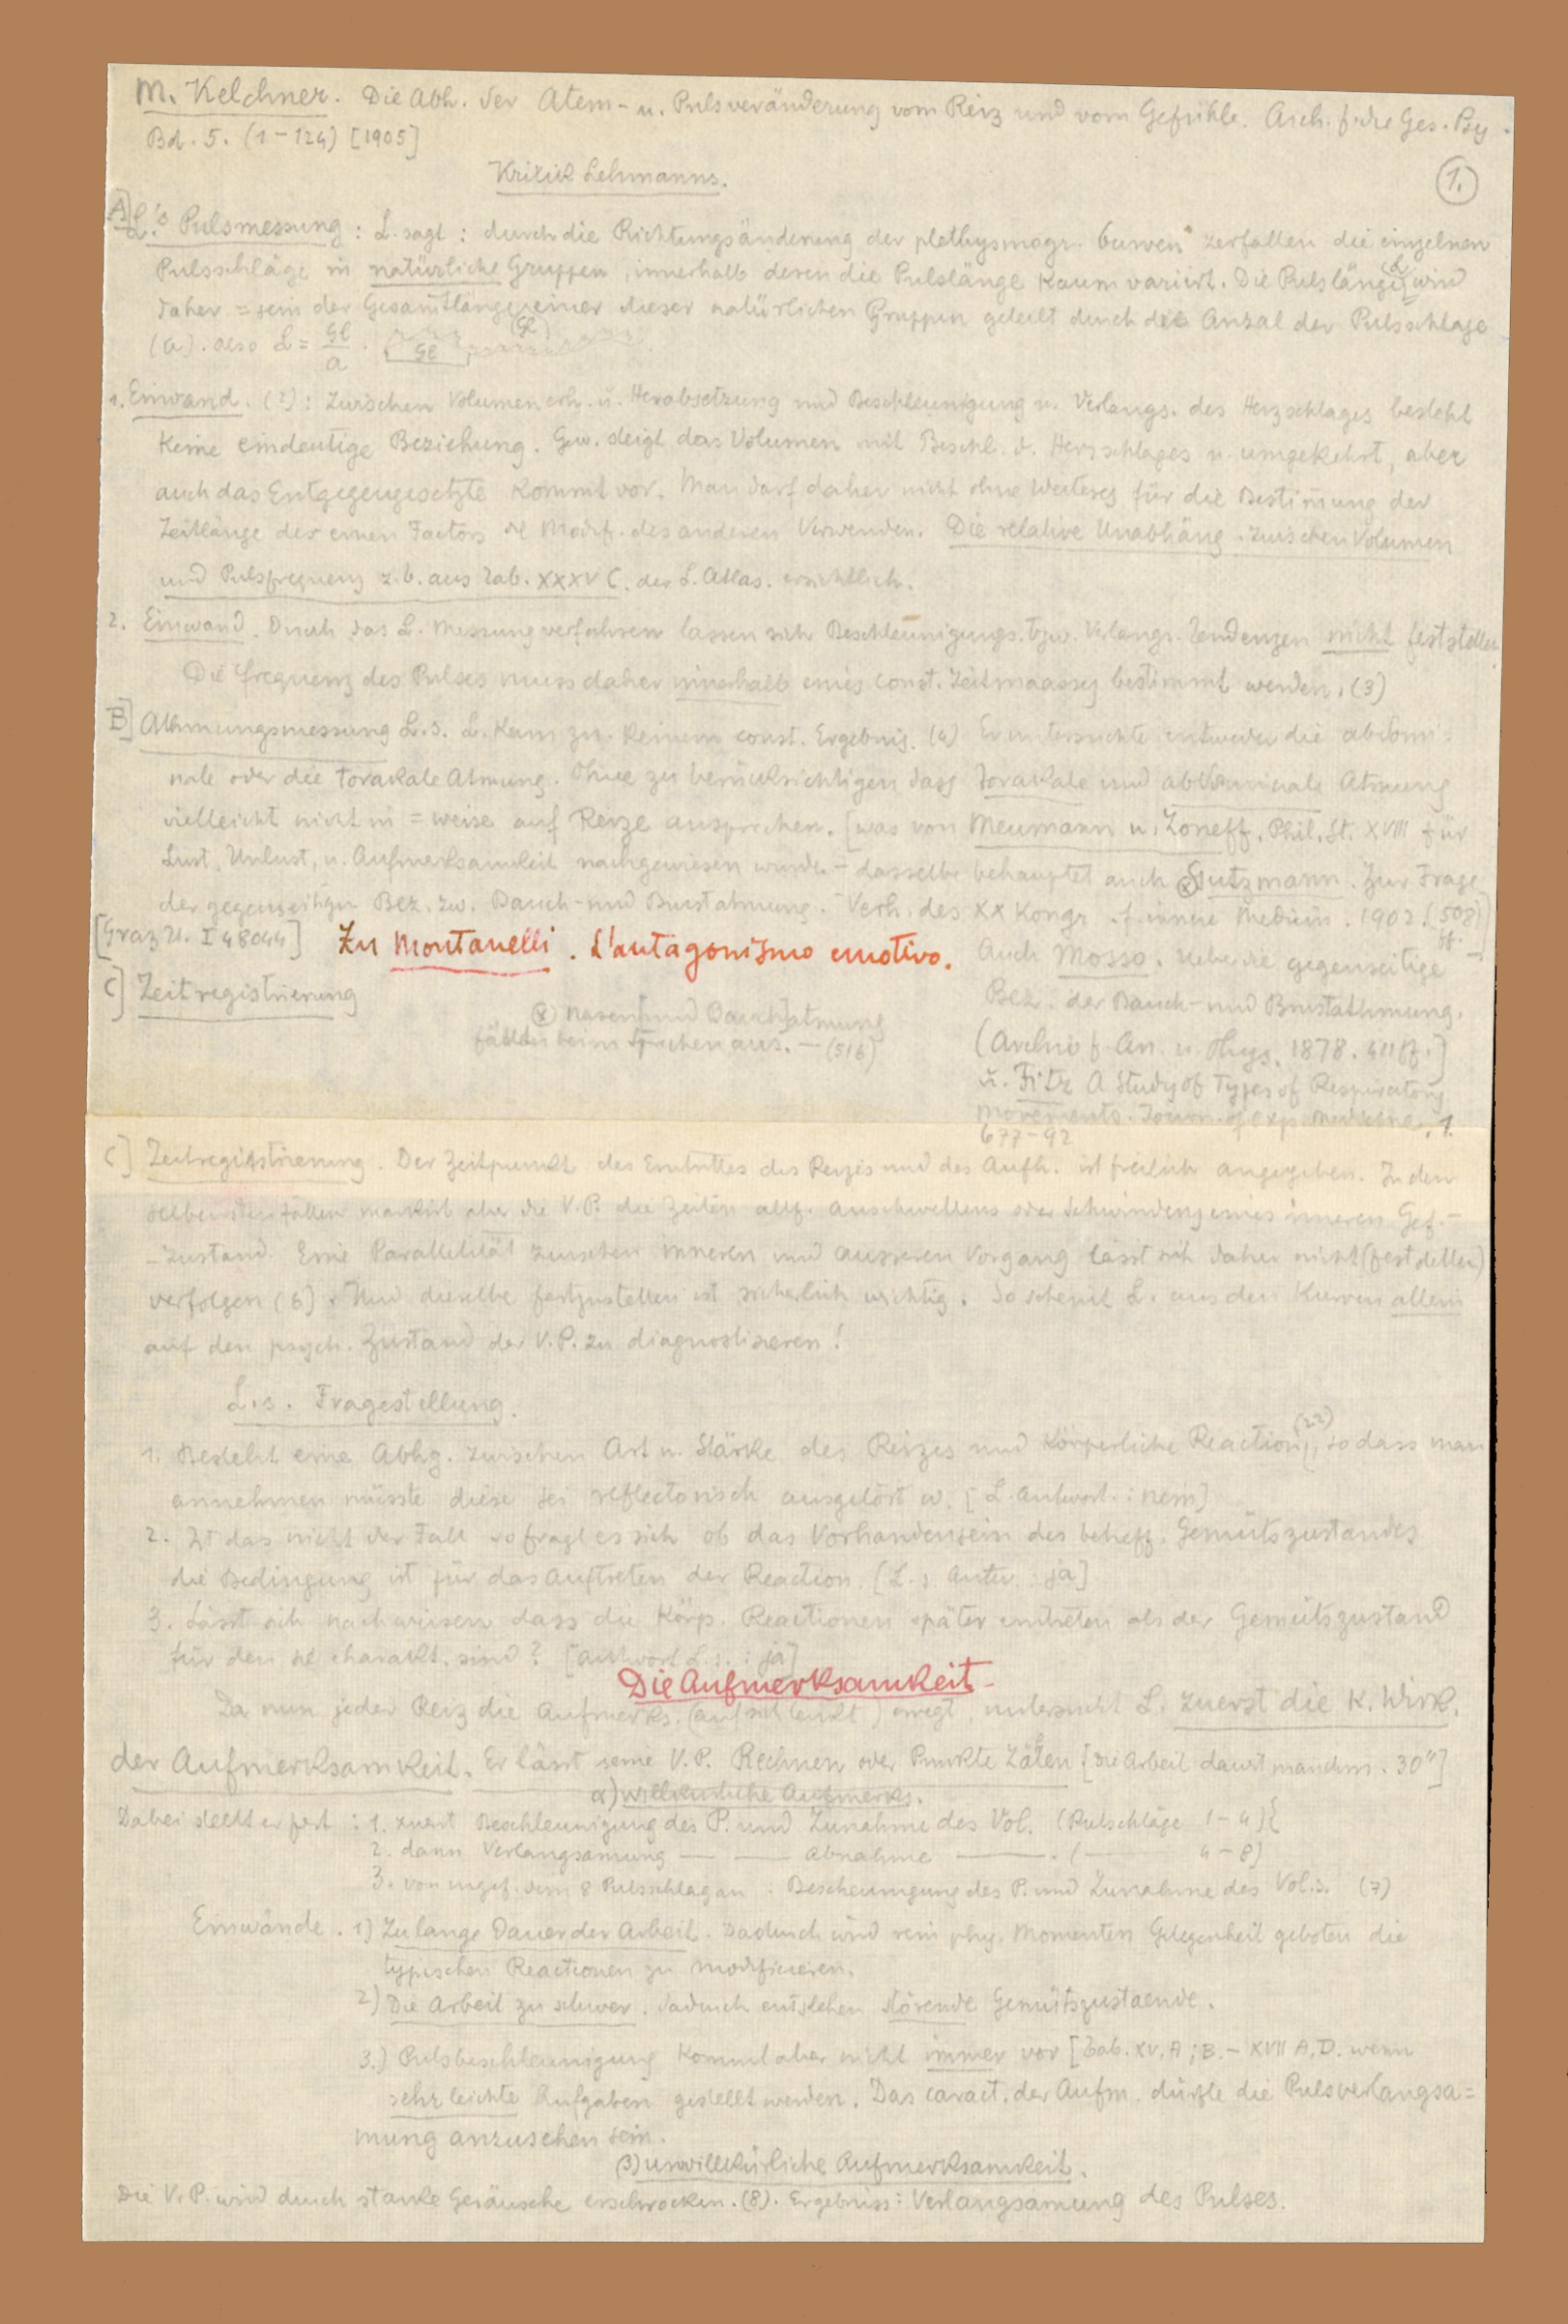 M. Kelchner. Die Abh. der Atem- u. Pulsveränderung vom Reiz und vom Gefühle. Arch. f. die Ges. Psy.
Bd. 5. (1-124) [1905]
Kritik Lehmanns.
1.
A] L.'s Pulsmessung: L. sagt: durch die Richtungsänderung der plethysmogr. Curven zerfallen die einzelnen
Pulsschläge in natürliche Gruppen, innerhalb deren die Pulslänge kaum variirt. Die Pulslänge (L) wird
daher = sein der Gesamtlänge (Gl) einer dieser natürlichen Gruppen geteilt durch die Anzal der Pulsschläge
(a). also L = Gl/a. Gl
1. Einwand. (2): Zwischen Volumenerh. u. Herabsetzung und Beschleunigung u. Verlangs. des Herzschlages besteht
keine eindeutige Beziehung. Gew. steigt das Volumen mit Beschl. d. Herzschlages u. umgekehrt, aber
auch das Entgegengesetzte kommt vor. Man darf daher nicht ohne Weiteres für die Bestim̄ung der
Zeitlänge des einen Factors die Modif. des anderen Verwenden. Die relative Unabhäng. zwischen Volumen
und Pulsfrequenz z.b. aus Tab. XXXV C. der L. Atlas. ersichtlich.
2. Einwand. Durch das L. Messungverfahren lassen sich Beschleunigungs. bzw. Verlangs. Tendenzen nicht feststellen.
Die Frequenz des Pulses muss daher innerhalb eines const. Zeitmaasses bestimmt werden. (3)
B] Athmungsmessung L.s. L. kam zu keinem const. Ergebnis. (4) Er untersuchte entweder die abdomi=
nale oder die torakale Atmung. Ohne zu berücksichtigen dass torakale und abdominale Atmung
vielleicht nicht in = weise auf Reize ansprechen. [was von Meumann u. Zoneff. Phil. St. XVIII für
Lust, Unlust, u. Aufmerksamkeit nachgewiesen wurde - dasselbe behauptet auch Gutzmann. Zur Frage
der gegenseitigen Bez. zw. Bauch- und Brustatmung. Verh. des XX Kongr. f. innere Medizin. 1902. (508)
ff.
[Graz U. I 48044] Zu Montanelli. L'antagonismo emotivo. Auch Mosso. Ueber die gegenseitige
C] Zeitregistrierung
Bez. der Bauch- und Brustathmung.
Nasen [und Bauch]atmung
fällt beim Sprechen aus. - (516)
(Archiv f. An. u. Phys. 1878. 411 ff.]
u. Fitz A Study of Types of Respiratory
movements. Journ. of exp. medicine. 1.
677-92
C] Zeitregistrierung. Der Zeitpunkt des Eintrittes des Reizes und des Aufh. ist freilich angegeben. In den
seltensten Fällen markirt aber die V.P. die Zeiten allf. Anschwellens oder Schwindens eines inneren Gef.-
-zustand. Eine Parallelität zwischen inneren und äusseren Vorgang lässt sich daher nicht (feststellen)
verfolgen (6). Und dieselbe festzustellen ist sicherlich wichtig. So scheint L. aus den Kurven allein
auf den psych. Zustand der V.P. zu diagnostizeren!
L.s. Fragestellung.
1. Besteht eine Abhg. zwischen Art u. Stärke des Reizes und körperliche Reaction, (22) so dass man
annehmen müsste diese sei reflectorisch ausgelöst w. [L. Antwort.: nein]
2. Ist das nicht der Fall so fragt es sich ob das Vorhandensein des betreff. Gemütszustandes
die Bedingung ist für das Auftreten der Reaction. [L.s Antw.: ja]
3. Lässt sich nachweisen dass die Körp. Reactionen später eintreten als der Gemütszustand
für den sie charakt. sind? [Antwort L.s.: ja]
Die Aufmerksamkeit-
Da nun jeder Reiz die Aufmerks. (auf sich lenkt) erregt, untersucht L. zuerst die K. Wirk.
der Aufmerksamkeit. Er lässt seine V.P. Rechnen oder Punkte Zälen [die Arbeit dauert manchm. 30"]
α) willkürliche Aufmerks.
Dabei stellt er fest: 1. zuerst Beschleunigung des P. und Zunahme des Vol. (Pulschläge 1-4){
2. dann Verlangsamung — — Abnahme — . (— 4-8]
3. von ungef. dem 8 Pulsschlag an: Bescheunigung des P. und Zunahme des Vol.s. (7)
Einwände. 1) Zu lange Dauer der Arbeit. Dadurch wird rein phy. Momenten Gelegenheit geboten die
typischen Reactionen zu modificieren.
2) Die Arbeit zu schwer. dadurch entstehen störende Gemütszustaende.
3.) Pulsbeschleunigung kommt aber nicht immer vor [Tab. XV, A; B. - XVII A, D. wenn
sehr leichte Aufgaben gestellt werden. Das caract. der Aufm. dürfte die Pulsverlangsa=
mung anzusehen sein.
β) unwillkürliche Aufmerksamkeit.
Die V.P. wird durch starke Geräusche erschrocken. (8). Ergebniss: Verlangsamung des Pulses.